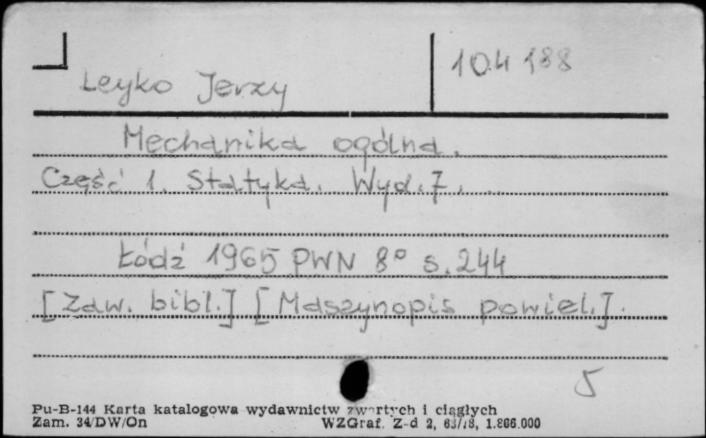 Leyko Jerzy
104 188
Mechanika ogólna.
Część 1. Statyka. Wyd. 7.
Łódź 1965 PWN 8° s. 244
[Zaw. bibl.] [Maszynopis powiel.].
5
Pu-B-144 Karta katalogowa wydawnictw zwartych i ciągłych
Zam. 34/DW/On WZGraf. Z-d 2, 1.866.000